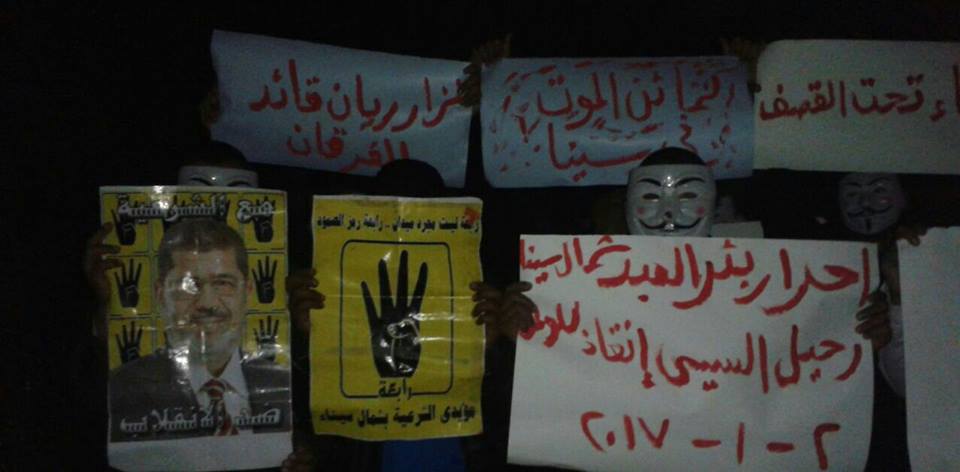 نزار ريان قائد
الفرقان
كمائن الموت
في سينا
اء تحت القصف
مع الشرعية
ضد الانقلاب
رابعة ليست مجرد ميدان .. رابعة رمز الصمود
رابعة
مؤيدى الشرعية بشمال سيناء
احرار بئر العبد شمال سينا
رحيل السيسي إنقاذ للوطن
٢ - ١ - ٢٠١٧